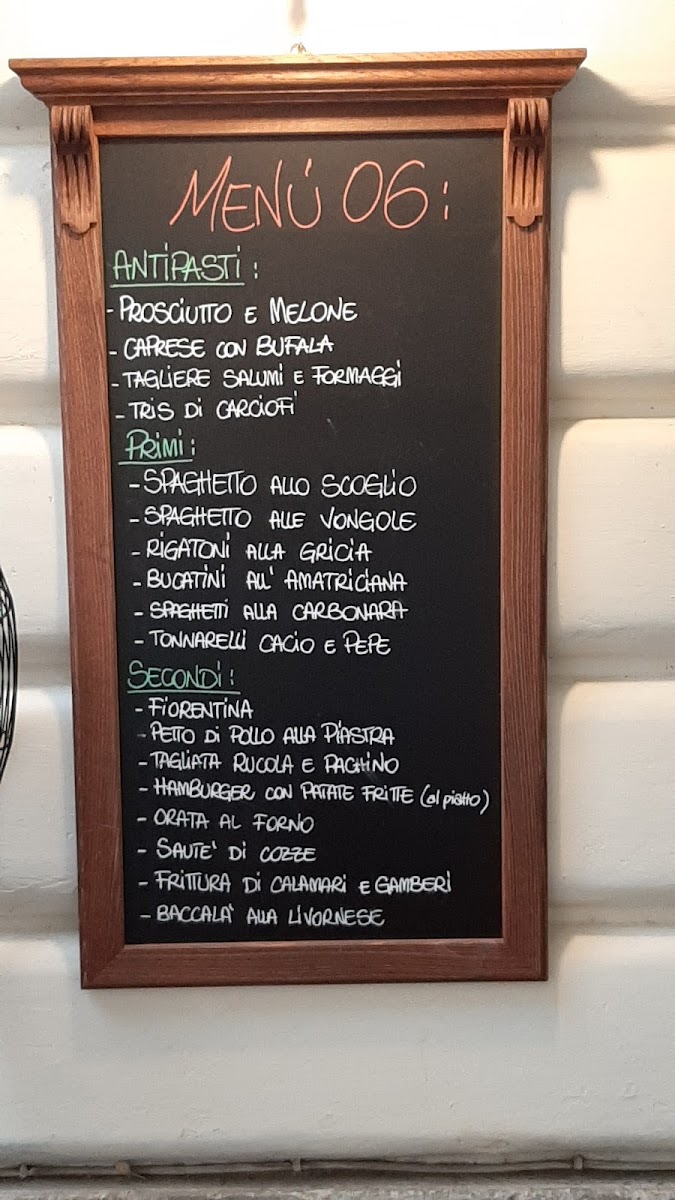 MENÚ 06:
ANTIPASTI:
- PROSCIUTTO E MELONE
- CAPRESE CON BUFALA
- TAGLIERE SALUMI E FORMAGGI
- TRIS DI CARCIOFI
PRIMI:
- SPAGHETTO ALLO SCOGLIO
- SPAGHETTO ALLE VONGOLE
- RIGATONI ALLA GRICIA
- BUCATINI ALL' AMATRICIANA
- SPAGHETTI ALLA CARBONARA
- TONNARELLI CACIO E PEPE
SECONDI:
- FIORENTINA
- PETTO DI POLLO ALLA PIASTRA
- TAGLIATA RUCOLA E PACHINO
- HAMBURGER CON PATATE FRITTE (al piatto)
- ORATA AL FORNO
- SAUTE' DI COZZE
- FRITTURA DI CALAMARI E GAMBERI
- BACCALA' ALLA LIVORNESE